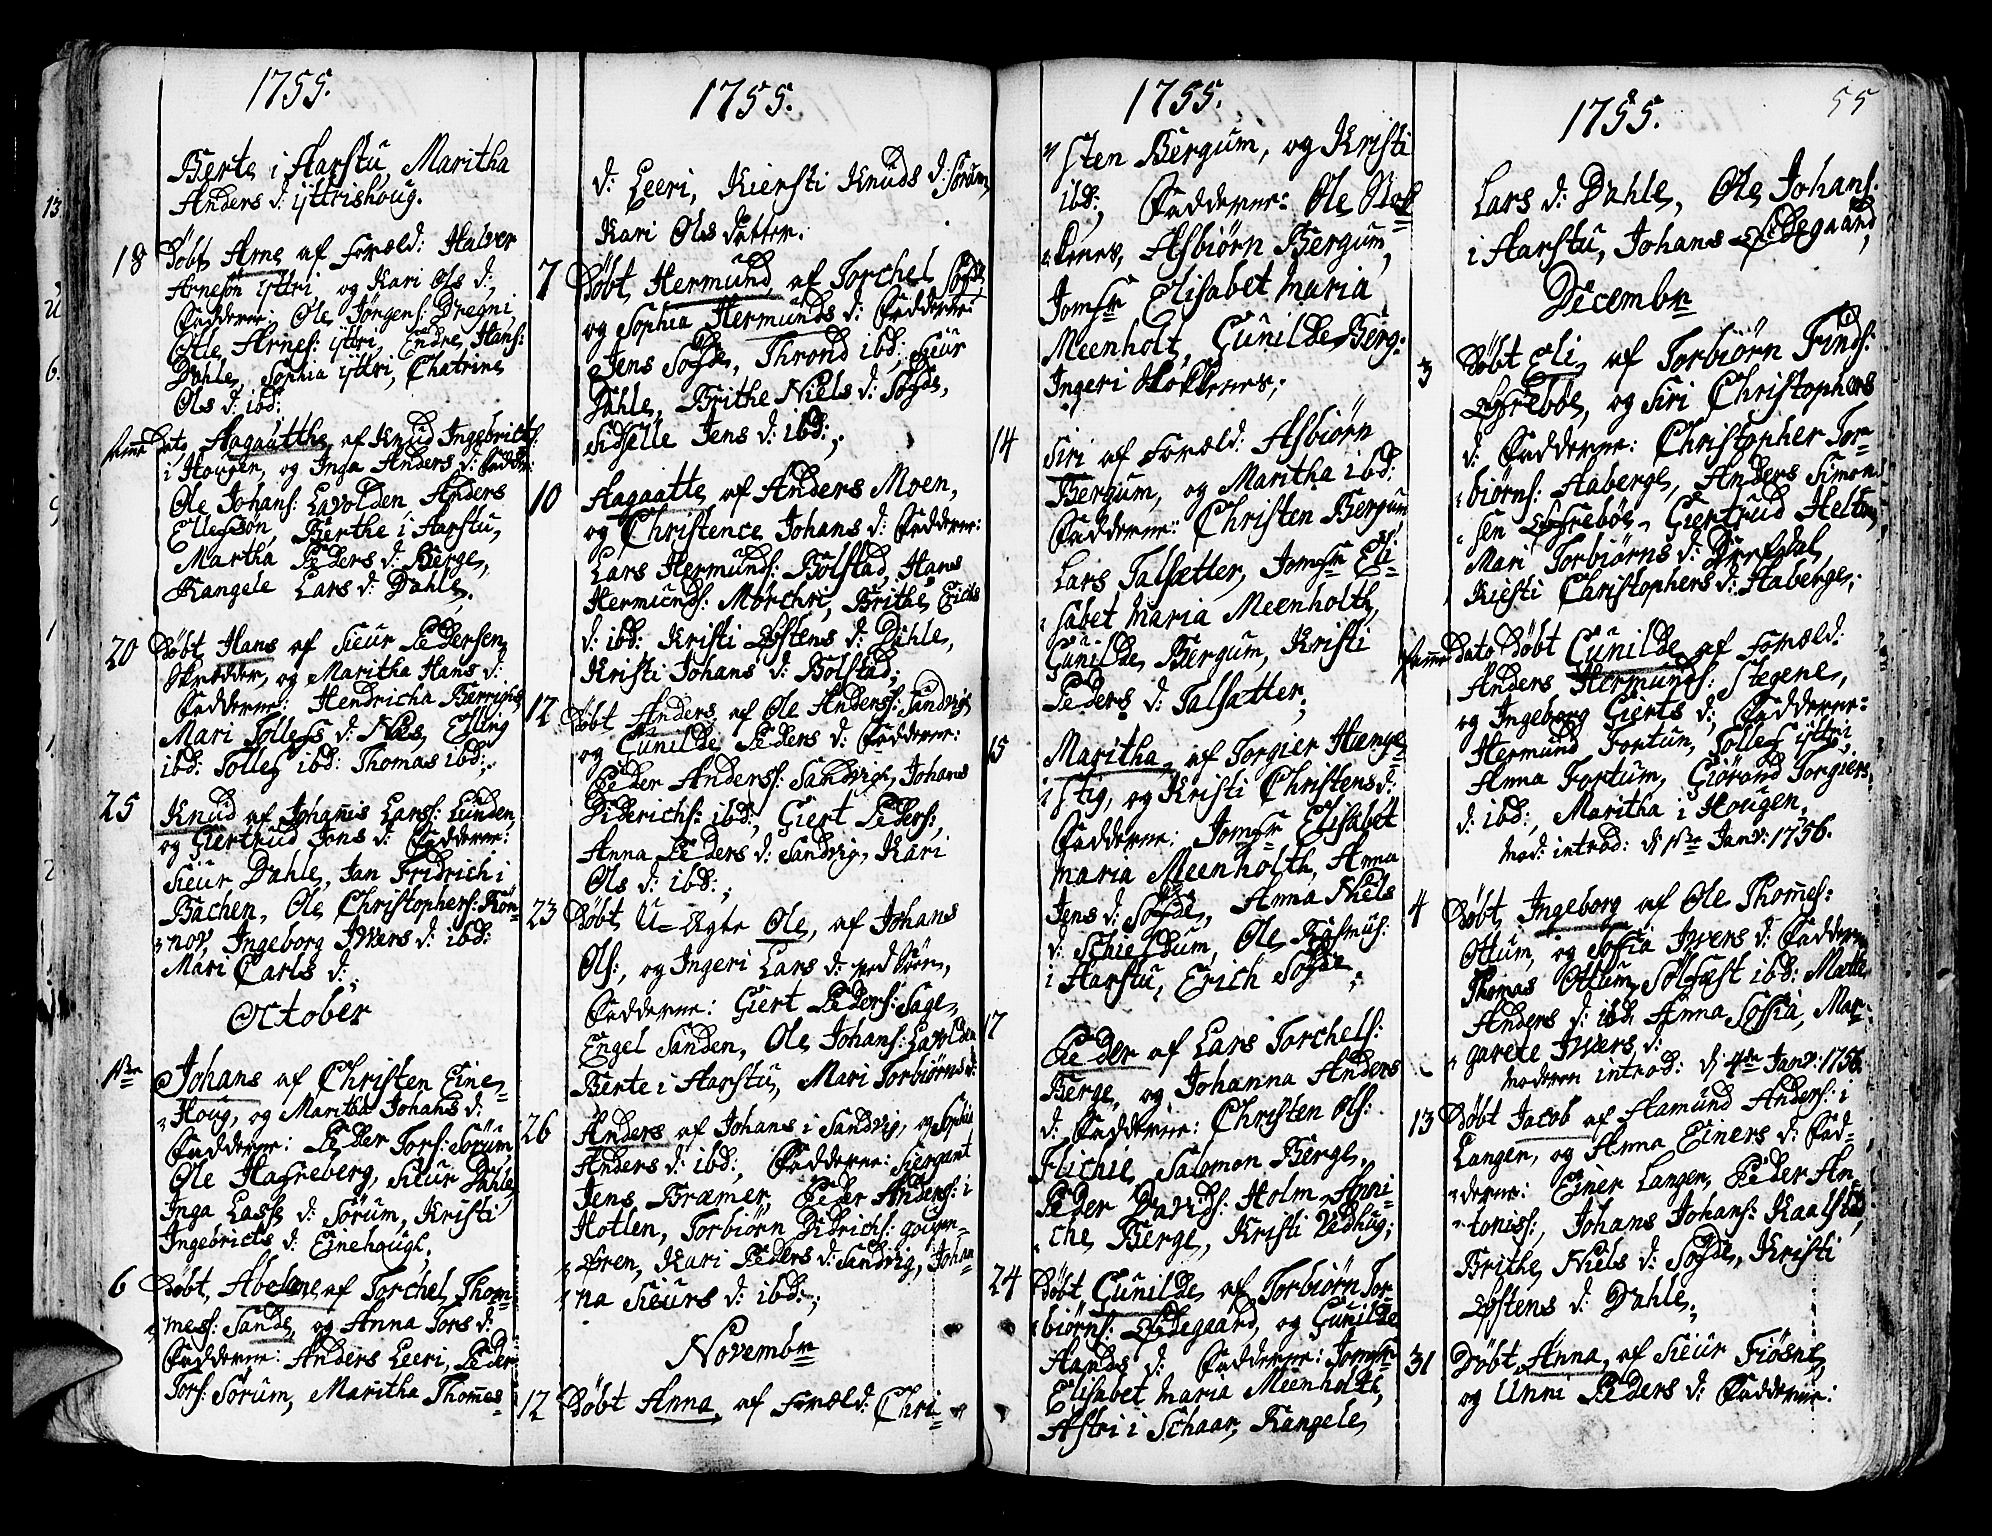 1755.
Berte i Aarstu, Maritha
Anders d: ÿttrishoug.
18 Døbt Arne af Foræld: Halver
Arneson ÿttri og Kari Ols d:
Fadderne: Ole Jørgens: Dregni,
Ole Arnes: ÿttri, Endre Hans:
Dahle, Sophia ÿttri, Chatrine
Ols d: ibd:
Dato Aagaatthe af Knud Ingebricts:
i Hougen, og Inga Anders d: Fadder:
Ole Johans: Lavolden, Anders
Ellefsøn, Berthe i Aarstu,
Martha Peders d: Berge,
Rangele Lars d: Dahle,
20 Døbt Hans af Sieur Pedersen
Skrædder, og Maritha Hans d:
Fadderne: Hendricha
Mari Tollefs d: Elling
ibd: Tollef ibd: Thomas ibd:
25 Knud af Johañis Lars: Lunden,
og Giertrud Jons d: Fadderne:
Sieur Dahle, Jan Fridrich i
Bachen, Ole Christophers: Røn-
nov, Ingeborg Iwers d: ibd:
Mari Carls d:
October
Johans af Christen Eine-
Houg, og Maritha Johans d:
Fadderne: Peder Tors: Sørum
Ole Hafreberg, Sieur Dahle,
Inga Lass d: Sørum, Kristi
Ingebricts d: Einehough,
6 Døbt, Abelone af Torchel Thom-
mes: Sande, og Anna Tors d:
Fadderne: Anders Leeri, Peder
Tors: Sørum, Maritha Thom̃es-
1755.
d: Leeri, Kiersti Knuds d: Sørum
Kari Ols datter.
7 Døbt, Hermund, af Torchel Sogde,
og Sophia Hermunds d: Fadderne:
Jens Sogde, Thrond ibd:, Sieur
Dahle, Brithe Niels d: Sogde,
Sidselle Jens d: ibd:,
10 Aagaatte, af Anders Moen,
og Christence Johans d: Fadderne:
Lars Hermunds: Bolstad, Hans
Hermunds: Morchri, Brithe Erichs
d: ibd: Kristi Ofstens d: Dahle,
Kristi Johans d: Bolstad;
12 Døbt Anders af Ole Anderss: Sandvig,
og Gunilde Peders d: Fadderne:
Peder Anderss: Sandvig, Johans
Diderichs: ibd:, Giert Peders:,
Anna Peders d: Sandvig, Kari
Ols d: ibd:,
23 Døbt U-ægte Ole, af Johans
Ols:, og Ingeri Lars d:
Fadderne: Giert Peders: Sage,
Engel Sanden, Ole Johans: Lavolden
Berte i Aarstu, Mari Torbiørns d:
26 Anders af Johans i Sandvig, og Sophia
Anders d: ibd:, Fadderne: Siergant
Jens Bræmer, Peder Anders: i
Hotlen, Torbiørn Didrichs:
Kari Peders d: Sandvig, Johan-
na Sieurs d: ibd:,
Novembr
12 Døbt Anna, af Foræld: Chri-
1755.
sten Bergum, og Kristi
ibd:, Fadderne: Ole
Asbiørn Bergum,
Jomfr Elisabet Maria
Meenholt, Gunilde Berg:
Ingeri
14 Siri af Foræld: Asbiørn
Bergum, og Maritha ibd:
Fadderne: Christen Bergum
Lars Talsætter, Jomfr Eli-
sabet Maria Meenholth,
Gunilde Bergum, Kristi
Peders d: Talsætter;
15 Maritha, af Torgier Hænge-
stig, og Kristi Christens d:
Fadderne: Jomfr Elisabet
Maria Meenholth, Anna
Jens d: Sogde, Anna Niels
d: Schieldum, Ole Rasmus:
i Aarstu, Erich Sogde,
17 Peder af Lars Torchels:
Berge, og Johanna Anders
d: Fadderne: Christen Ols:
Flichie, Salomon Berge,
Peder Davids: Holm, Anni-
che Berge, Kristi Vedhug;
24 Døbt Gunilde, af Torbiørn Tor-
biørns: Ødegaard, og Gunilde
Aamds d: Fadderne: Jomfr
Elisabet Maria Meenholth,
Astri i Schaar, Rangele
1755.
55
Lars d: Dahle, Ole Johans:
i Aarstu, Johans Ødegaard,
Decembr
3 Døbt Eli, af Torbiørn Finds:
og Siri Christophers
d: Fadderne: Christopher Tor-
biørns: Aaberge, Anders Simon-
sen Giertrud
Mari Torbiørns d:
Kiesti Christophers d: Aaberge;
Dato Døbt Gunilde, af Foræld:
Anders Hermunds: Stegene,
og Ingeborg Gierts d: Fadderne:
Hermund Fortun, Tollef ÿttri,
Anna Fortum, Giørand Torgiers
d: ibd:, Maritha i Hougen,
Mod: introd: d Janv: 1756.
4 Døbt, Ingeborg af Ole Thom̃es:
Ottum, og Soffia Iwers d: Fadderne
Thomas Ottum, Solfæst ibd: Marta
Anders d: ibd Anna Soffia, Mar-
garete Iwers d:
Moderen introd: d 4de Janv: 1756.
13 Døbt Jacob af Aamund Anders: i
Langen, og Anna Einers d: Fad-
derne: Einer Langen, Peder An-
toniss:, Johans Johans: Kaalstad,
Brithe Niels d: Sogde, Kristi
Ofstens d: Dahle,
31 Døbt, Anna, af Sieur Fiøsne,
og Unni Peders d: Fadderne: